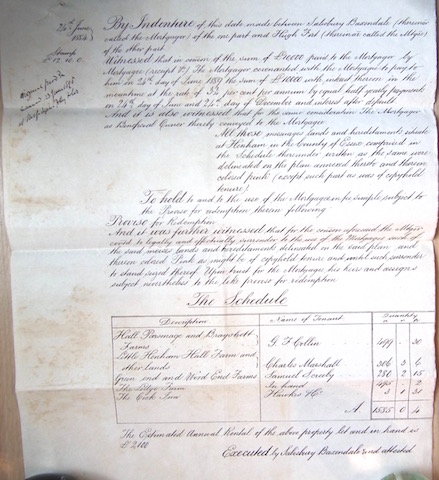 24th June
1884
Stamp
£12. 10. 0.
By Indenture of this date made between Salisbury Baxendale (therein
called the Mortgagor) of the one part and Hugh (therein called the Mtgee)
of the other part
Witnessed that in conson of the sum of £10000 paid to the Mortgagor by
Mortgagee (receipt &c) the Mortgagor covenanted with the Mortgagee to pay to
him on 24th June 1889 the sum of £10000 with interest thereon in the
meantime at the rate of 3¾ per cent per annum by equal half yearly payments
on 24th day of June and 24th day of December and interest after default
And it is also witnessed that for the same consideration the Mortgagor
as Beneficial Owner thereby conveyed to the Mortgagee
All those messuages lands and hereditaments situate
at Henham in the County of Essex comprised in
the Schedule thereunder written as the same were
delineated on the plan annexed thereto and thereon
colored pink (except such part as was of copyhold
tenure)
To hold to and to the use of the Mortgagee in fee simple subject to
the Proviso for redemption therein following
Proviso for Redemption
And it was further witnessed that for the conson aforesaid the Mtgor
covtd to legally and effectually surrender to the use of the Mortgagee
the said messes lands and hereditaments delineated on the said plan and
thereon colored Pink as might be of copyhold tenure and until such surrender
to stand seized thereof Upon trust for the Mortgagee his heirs and assigns
subject nevertheless to the like proviso for redemption
The Schedule
Description Name of Tenant Quantity
a r p
Hall Parsonage and
Farms G. F. Collin 499 . 30
Little Henham Hall Farm and
other lands Charles Marshall 306 3 6
Green end and Wood End Farms Samuel 250 2 15
The Lodge Farm In hand 2
The Cock Inn Hawkes & Co. 3 1 31
A 1555 0 4
The Estimated Annual Rental of the above property let and in hand is
£2100
Executed by Salisbury Baxendale and attested